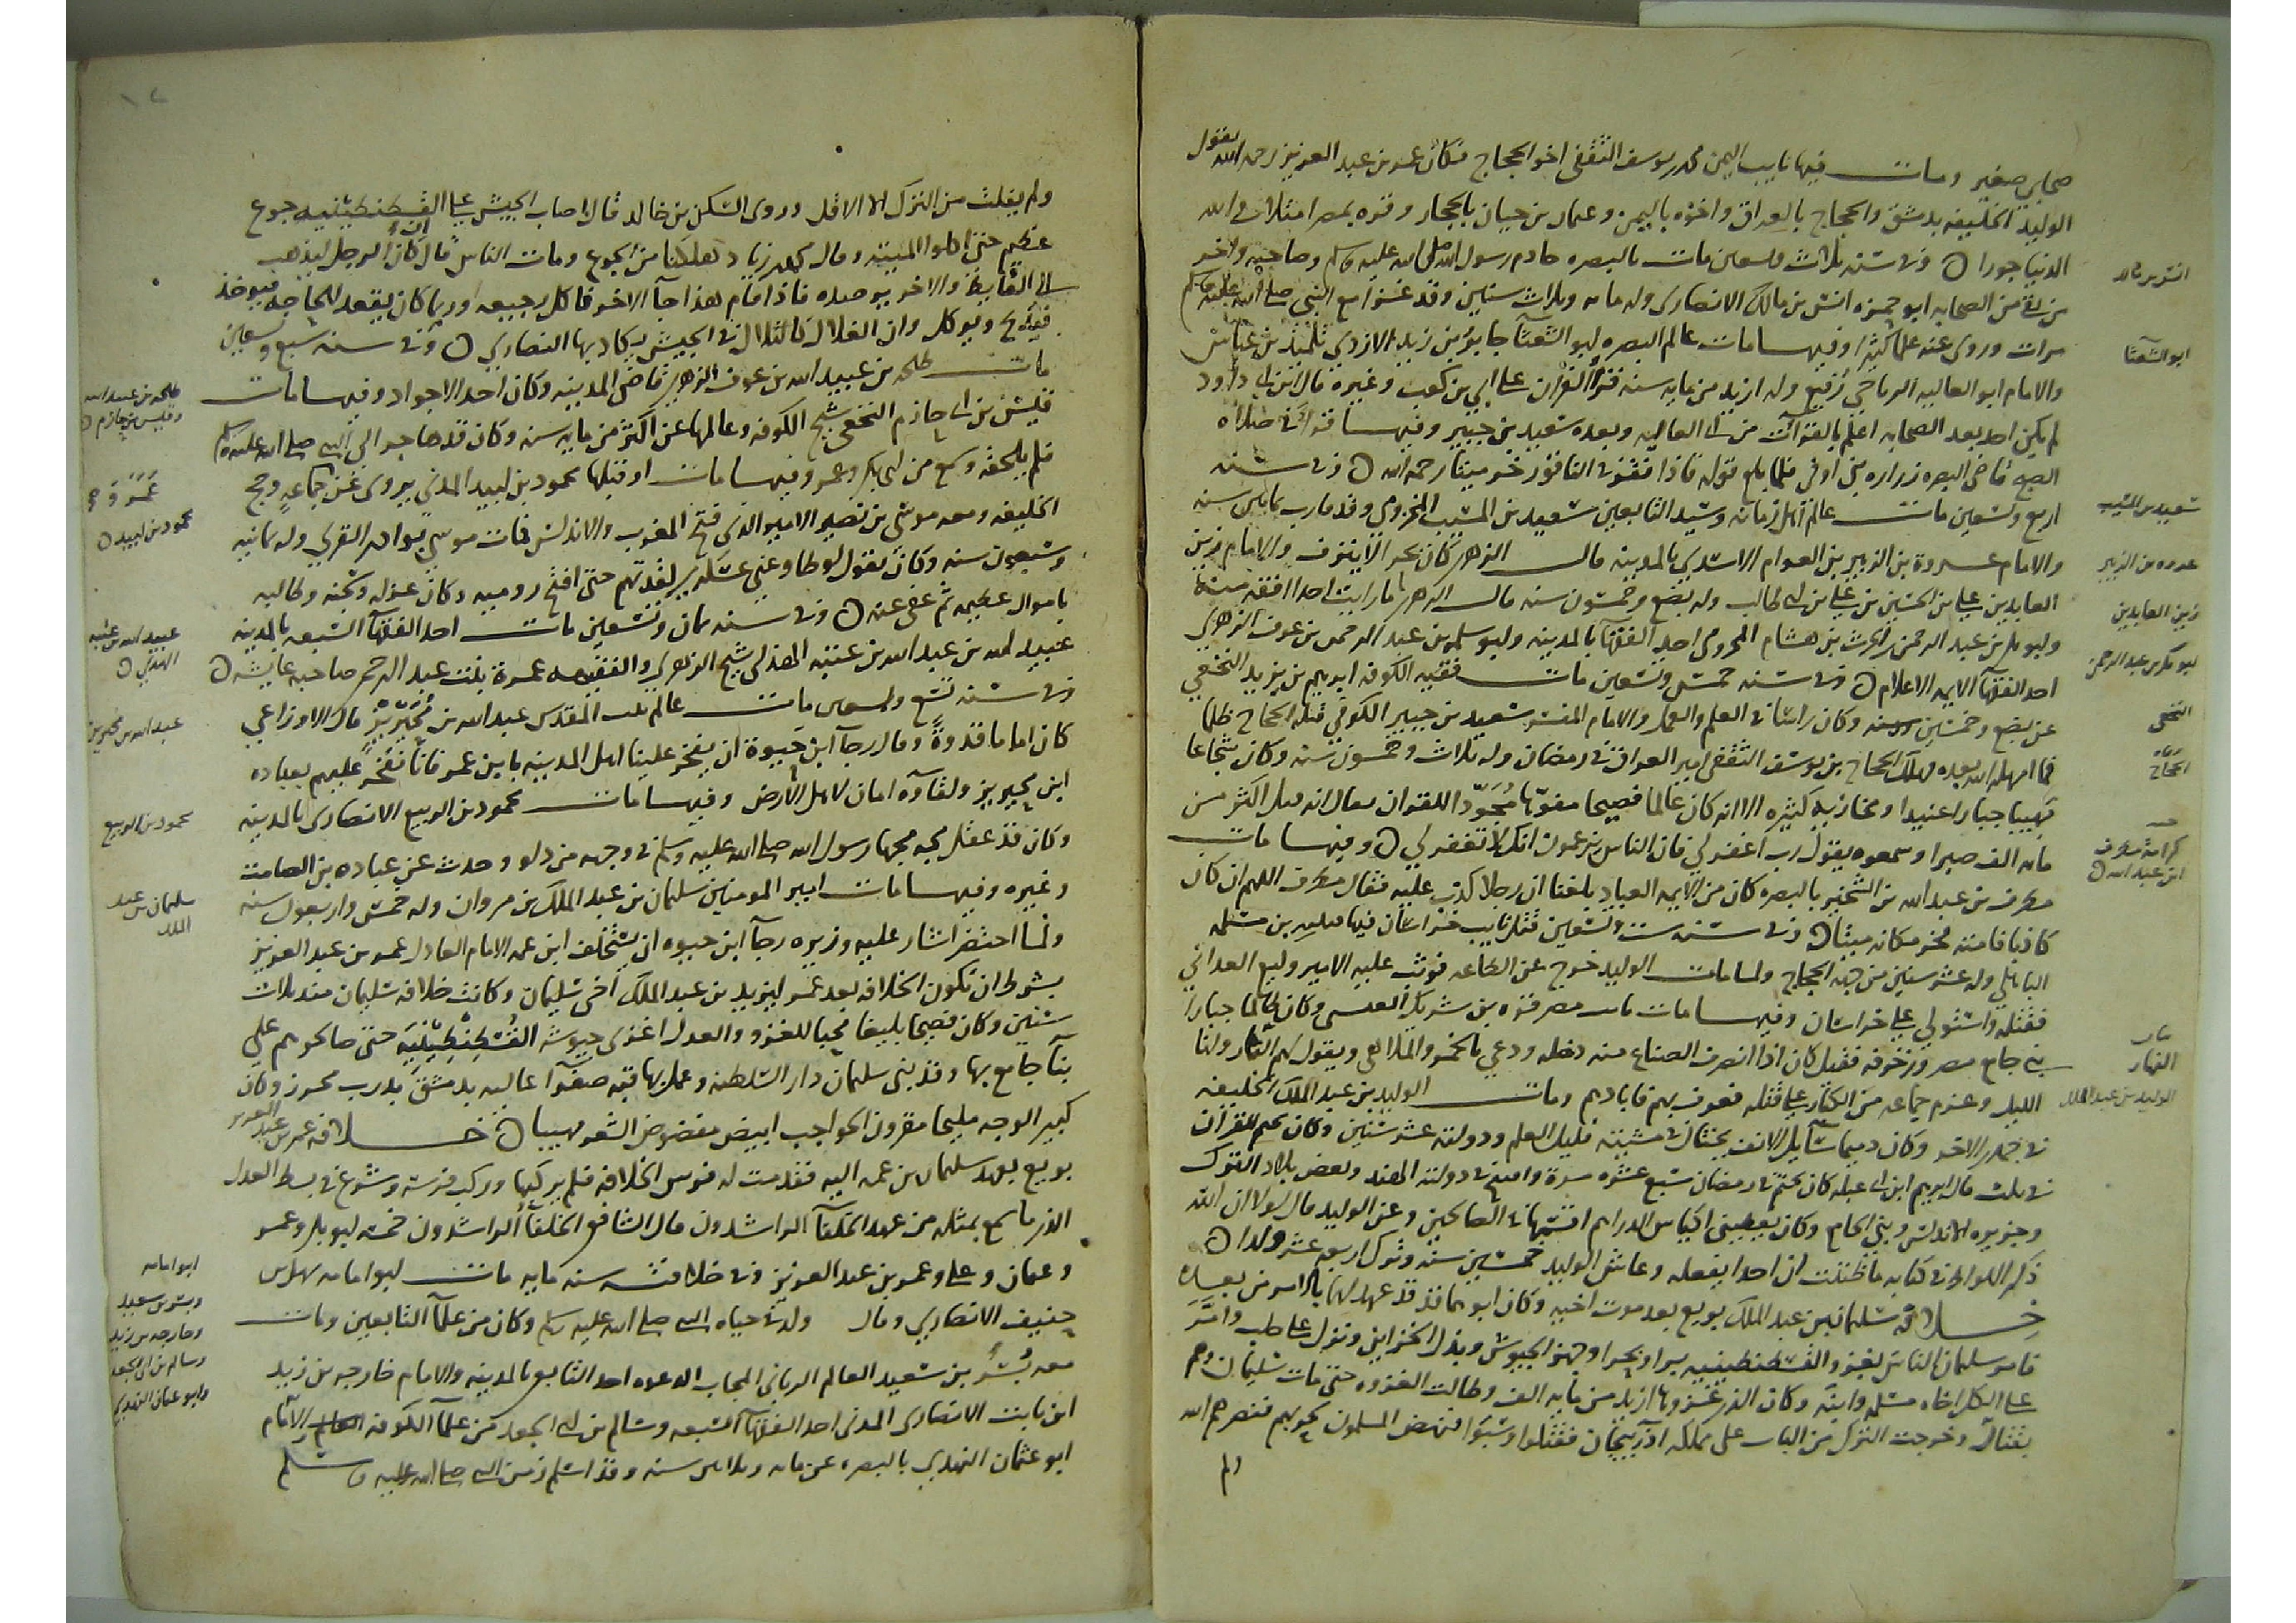 صحابي صغير ومات فيها نايب اليمن محمد بن يوسف الثقفي اخو الحجاج فكان عمر بن عبد العزيز رحمه الله يقول
الوليد الخليفه بدمشق والحجاج بالعراق واخوه باليمن وعثمان بن حيان بالحجاز وقره بمصر امتلات والله
الدنيا جورا وفي سنه ثلاث وتسعين مات بالبصره خادم رسول الله صلى الله عليه وسلم وصاحبه واخر
من بقي من الصحابه ابو حمزه انس بن مالك الانصاري وله مايه وثلاث سنين وقد غزا مع النبي صلى الله عليه وسلم
مرات وروى عنه علما كثيرا وفيها مات عالم البصره ابو الشعثا جابر بن زيد الازدي تلميذ بن عباس
والامام ابو العاليه الرياحي رفيع وله ازيد من مايه سنه قرا القران على ابي بن كعب وغيره قال ابن ابي داود
لم يكن احد بعد الصحابه اعلم بالقران من ابي العاليه وبعده سعيد بن جبير وفيها قرا في صلاه
الصبح قاضي البصره زراره بن اوفى فلما بلغ قوله فاذا نقر في الناقور خر ميتا رحمه الله وفي سنه
اربع وتسعين مات عالم اهل زمانه وسيد التابعين سعيد بن المسيب المخزومي وقد قارب ثمانين سنه
والامام عروة بن الزبير بن العوام الاسدي بالمدينه قال الزهري كان بحرا لا ينزف والامام زين
العابدين علي بن الحسين بن علي بن ابي طالب وله بضع وخمسون سنه قال الزهري ما رايت احدا افقه منه
وابو بكر بن عبد الرحمن بن الحرث بن هشام المخزومي احد الفقها بالمدينه وابو سلمه بن عبد الرحمن بن عوف الزهري
احد الفقها الايمه الاعلام وفي سنه خمس وتسعين مات فقيه الكوفه ابرهيم بن يزيد النخعي
عن بضع وخمسين سنه وكان راسا في العلم والعمل والامام المفسر سعيد بن جبير الكوفي قتله الحجاج ظلما
فما امهله الله بعده فهلك الحجاج بن يوسف الثقفي امير العراق في رمضان وله ثلاث وخمسون سنه وكان شجاعا
مهيبا جبارا عنيدا ومخازيه كثيره الا انه كان عالما فصيحا مفوها مجودا للقران يقال انه قتل اكثر من
مايه الف صبرا وسمعوه يقول رب اغفر لي فان الناس يزعمون انك لا تغفر لي وفيها مات
مطرف بن عبد الله بن الشخير بالبصره كان من الايمه العباد بلغنا ان رجلا كذب عليه فقال مطرف اللهم ان كان
كاذبا فامته فخر مكانه ميتا وفي سنه ست وتسعين قتل نايب خراسان فيها قتيبه بن مسلم
الباهلي وله عشر سنين من جهه الحجاج ولما مات الوليد خرج عن الطاعه فوثب عليه الامير وكيع الغداني
فقتله واستولى على خراسان وفيها مات نايب مصر قره بن شريك العبسي وكان ظالما جبارا
بنى جامع مصر وزخرفه فقيل كان اذا انصرف الصناع منه دخله ودعي بالخمر والملاهي ويقول لهم النهار ولنا
الليل وعزم جماعه من الكبار على قتله فعرف بهم فابادهم ومات الوليد بن عبد الملك الخليفه
في جمدى الاخر وكان دميما سايل الانف يختال في مشيته قليل العلم ودولته عشر سنين وكان يختم القران
في ثلث قال ابرهيم ابن ابي عبله كان يختم في رمضان سبع عشره مرة وافتتح في دولته الهند وبعض بلاد الترك
وجزيره الاندلس وبنى الجامع وكان يعطيني اكياس الدراهم اقسمها في الصالحين وعن الوليد قال لولا ان الله
ذكر اللواط في كتابه ما ظننت ان احدا يفعله وعاش الوليد خمسين سنه وترك اربعه عشر ولدا
خلافه سليمان بن عبد الملك بويع بعد موت اخيه وكان ابوهما قد عهد لهما بالامر من بعده
فامر سليمان الناس بغزو القسطنطينيه برا وبحرا وجهز الجيوش وبذل الخزاين ونزل على حلب وامر
على الكل اخاه مسلمه وابنه وكان الذين غزوها ازيد من مايه الف وطالت الغزوه حتى مات سليمان وهم
بقتال وخرجت الترك من الباب على مملكه اذربيجان فقتلوا وسبوا فنهض المسلمون لحربهم فنصرهم الله
ولم
انس بن مالك
ابو الشعثا
سعيد بن المسيب
عروه بن الزبير
زين العابدين
ابو بكر بن عبد الرحمن
النخعي
الحجاج
كرامة مطرف
ابن عبد الله
النهار
الوليد بن عبد الملك
ولم يفلت من الترك الا الاقل وروى السكن بن خالد قال اصاب الجيش على القسطنطينيه جوع
عظيم حتى اكلوا الميته وقال محمد بن زياد هلكنا من الجوع ومات الناس قال ان كان الرجل ليذهب
الى الغايط والاخر يرصده فاذا قام هذا جا الاخر فاكل رجيعه وربما كان يقعد للحاجه فيوخذ
فيذبح ويوكل وان الغلال كالتلال في الجيش يكاد بها النصارى وفي سنه سبع وتسعين
مات طلحه بن عبيد الله بن عوف الزهري قاضي المدينه وكان احد الاجواد وفيها مات
قيس بن ابي حازم النخعي شيخ الكوفه وعالمها عن اكثر من مايه سنه وكان قد هاجر الى النبي صلى الله عليه وسلم
فلم يلحقه وسمع من ابي بكر وعمر وفيها مات او قبلها محمود بن لبيد المدني يروى عن جماعه وحج
الخليفه ومعه موسى بن نصير الامير الذي فتح المغرب والاندلس فمات موسى بوادي القرى وله ثمانيه
وسبعون سنه وكان يقول لو طاوعني عسكري لقدتهم حتى افتح روميه وكان عزله وسجنه وطالبه
باموال عظيمه ثم عفى عنه وفي سنه ثمان وتسعين مات احد الفقها السبعه بالمدينه
عبيد الله بن عبد الله بن عتبه الهذلي شيخ الزهري والفقيهه عمرة بنت عبد الرحمن صاحبه عايشه
وفي سنه تسع وتسعين مات عالم بيت المقدس عبد الله بن محيريز قال الاوزاعي
كان اماما قدوة وقال رجا ابن حيوة ان يفخر علينا اهل المدينه بابن عمر فانا نفخر عليهم بعباده
ابن محيريز وبقاوه امان لاهل الارض وفيها مات محمود بن الربيع الانصاري بالمدينه
وكان قد عقل مجه مجها رسول الله صلى الله عليه وسلم في وجهه من دلو وحدث عن عباده بن الصامت
وغيره وفيها مات امير المومنين سليمان بن عبد الملك بن مروان وله خمس واربعون سنه
ولما احتضر اشار عليه وزيره رجا ابن حيوه ان يستخلف ابن عمه الامام العادل عمر بن عبد العزيز
بشرط ان تكون الخلافه بعد عمر ليزيد بن عبد الملك اخي سليمان وكانت خلافه سليمان ثلاث
سنين وكان فصيحا بليغا محبا للغزو والعدل اغزى جيوشه القسطنطينية حتى صالحوهم على
بنا جامع بها وقد بنى سليمان دار السلطنه وعمل بها قبه صفرا عاليه بدمشق بدرب محرز وكان
كبير الوجه مليحا مقرون الحواجب ابيض مقصوص الشعر مهيبا خلافه عمر بن عبد العزيز
بويع بعهد سليمان بن عمه اليه فقدمت له فرس الخلافه فلم يركبها وركب فرسه وشرع في بسط العدل
الذي ما سمع بمثله من عهد الخلفا الراشدون قال الشافعي الخلفا الراشدون خمسه ابو بكر وعمر
وعثمان وعلي وعمر بن عبد العزيز وفي خلافته سنه مايه مات ابو امامه سهل بن
حنيف الانصاري وقال ولد في حياه النبي صلى الله عليه وسلم وكان من علما التابعين ومات
معه بسر بن سعيد العالم الرباني المجاب الدعوه احد التابعين بالمدينه والامام خارجه بن زيد
ابن ثابت الانصاري المدني احد الفقها السبعه وسالم بن ابي الجعد من علما الكوفه والامام
ابو عثمان النهدي بالبصره عن مايه وثلاثين سنه وقد اسلم زمن النبي صلى الله عليه وسلم
طلحه بن عبيد الله
وقيس بن حازم
محمود بن لبيد
عبيد الله بن عتبه
الهذلي
عبد الله بن محيريز
محمود بن الربيع
سليمان بن عبد
الملك
ابو امامه
وبسر بن سعيد
وخارجه بن زيد
وسالم بن ابي الجعد
وابو عثمان النهدي